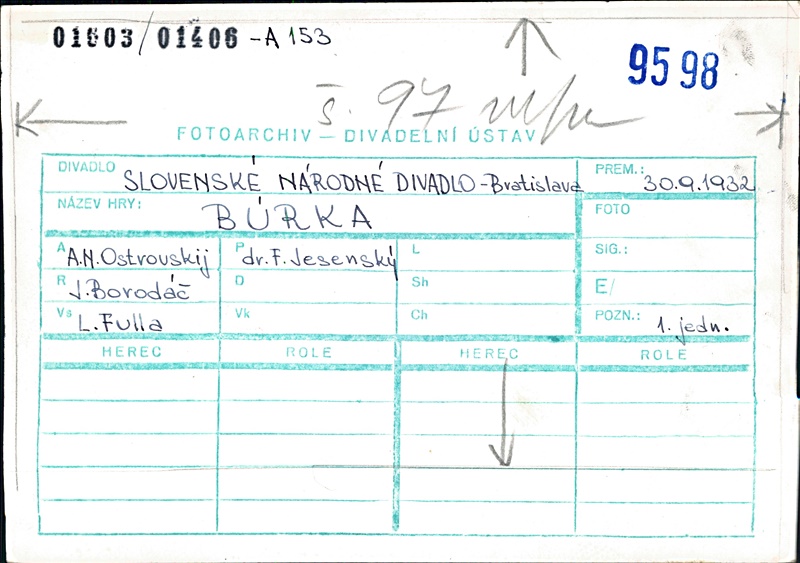 01603/01406 -A 153
9598
š. 97
FOTOARCHIV — DIVADELNÍ ÚSTAV
DIVADLO SLOVENSKÉ NÁRODNÉ DIVADLO - Bratislava
PREM.: 30.9.1932
NÁZEV HRY: BÚRKA
FOTO
A A.N. Ostrovskij P dr. F. Jesenský L
SIG.:
R J. Borodáč D Sh
E/
Vs L. Fulla Vk Ch
POZN.: 1. jedn.
HEREC ROLE HEREC ROLE